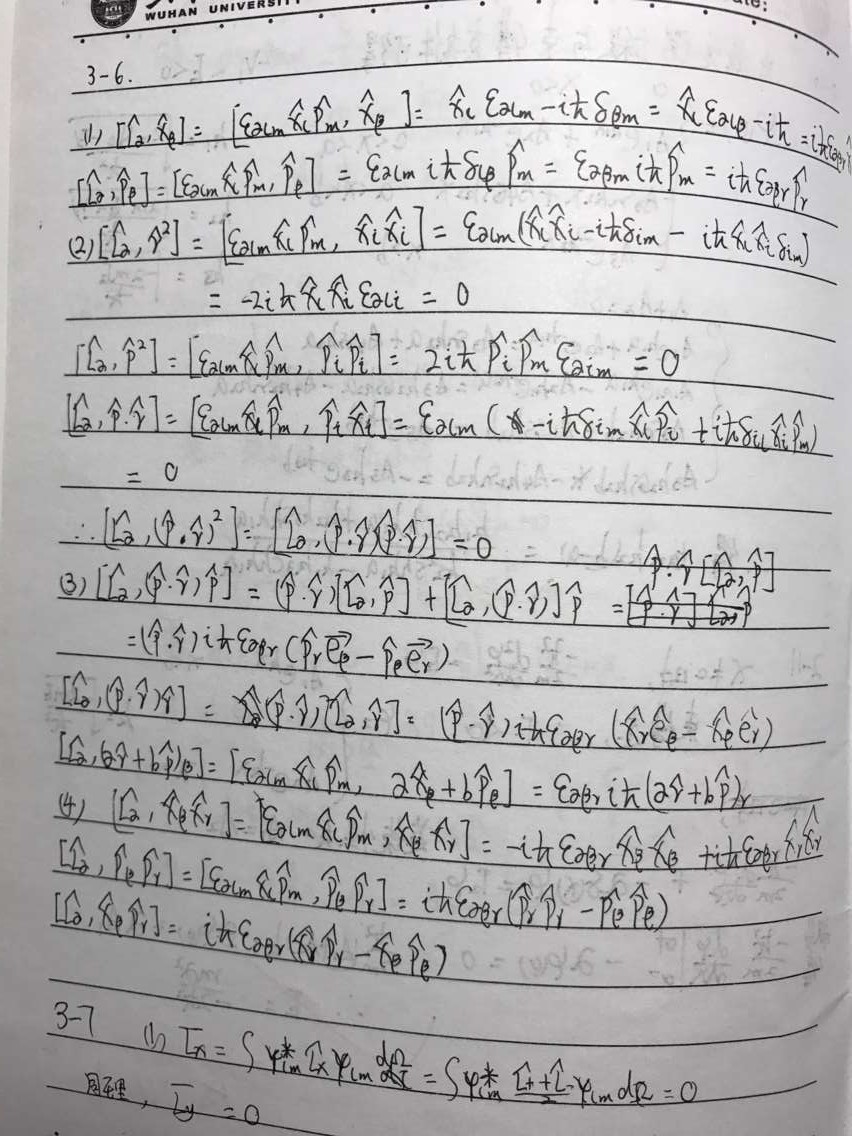 WUHAN UNIVERSITY
3-6.
(1) [L̂α, x̂β] = [εαlm x̂l p̂m, x̂β] = x̂l εαlm -iħ δβm = x̂l εαlβ -iħ = iħ εαβγ
[L̂α, p̂β] = [εαlm x̂l p̂m, p̂β] = εαlm iħ δlβ p̂m = εαβm iħ p̂m = iħ εαβγ p̂γ
(2) [L̂α, r̂²] = [εαlm x̂l p̂m, x̂i x̂i] = εαlm (x̂l x̂i -iħ δim - iħ x̂l x̂i δim)
= -2iħ x̂l x̂i εαli = 0
[L̂α, p̂²] = [εαlm x̂l p̂m, p̂i p̂i] = 2iħ p̂i p̂m εαim = 0
[L̂α, p̂·r̂] = [εαlm x̂l p̂m, p̂i x̂i] = εαlm (-iħ δim x̂l p̂i + iħ δil x̂i p̂m)
= 0
∴ [L̂α, (p̂·r̂)²] = [L̂α, (p̂·r̂)(p̂·r̂)] = 0
(3) [L̂α, (p̂·r̂) p̂] = (p̂·r̂)[L̂α, p̂] + [L̂α, (p̂·r̂)] p̂ = p̂·r̂ [L̂α, p̂]
= (p̂·r̂) iħ εαβγ (p̂γ e⃗β - p̂β e⃗γ)
[L̂α, (p̂·r̂) r̂] = (p̂·r̂)[L̂α, r̂] = (p̂·r̂) iħ εαβγ (x̂γ êβ - x̂β êγ)
[L̂α, (a r̂ + b p̂)β] = [εαlm x̂l p̂m, a x̂β + b p̂β] = εαβγ iħ (a r̂ + b p̂)γ
(4) [L̂α, x̂β x̂γ] = [εαlm x̂l p̂m, x̂β x̂γ] = -iħ εαβγ x̂β x̂β + iħ εαβγ x̂γ x̂γ
[L̂α, p̂β p̂γ] = [εαlm x̂l p̂m, p̂β p̂γ] = iħ εαβγ (p̂γ p̂γ - p̂β p̂β)
[L̂α, x̂β p̂γ] = iħ εαβγ (x̂γ p̂γ - x̂β p̂β)
3-7 (1) L̄x = ∫ ψ*lm L̂x ψlm dΩ = ∫ ψ*lm (L̂+ + L̂-)/2 ψlm dΩ = 0
同理, L̄y = 0